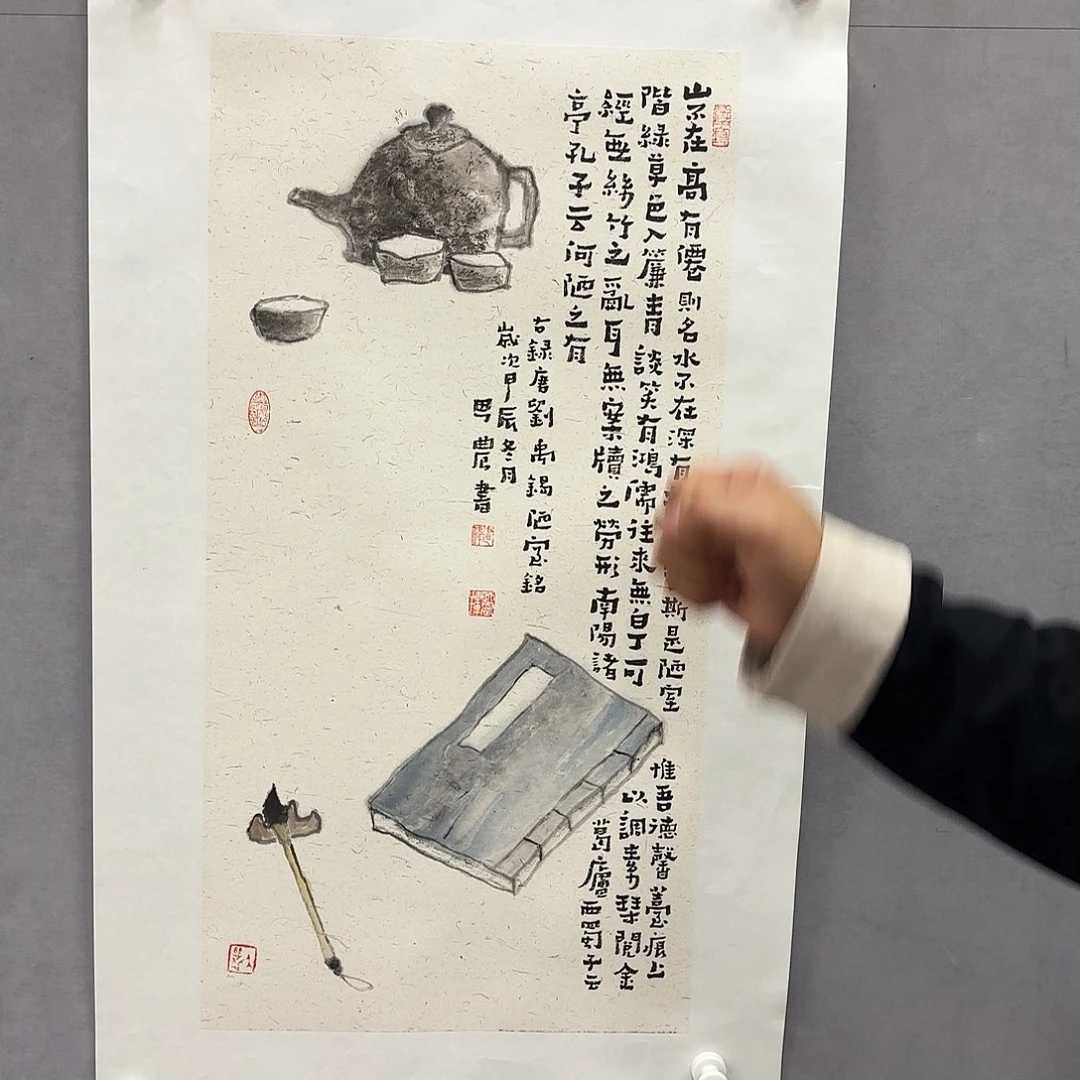 山不在高有僊則名水不在深有斯是陋室惟吾德馨薹痕上
階綠草色入簾青談笑有鴻儒往來無白丁可以調素琹閱金
經無絲竹之亂耳無案牘之勞形南陽諸葛廬西蜀子云
亭孔子云何陋之有
右録唐劉禹錫陋室銘
歲次甲辰冬月
農書